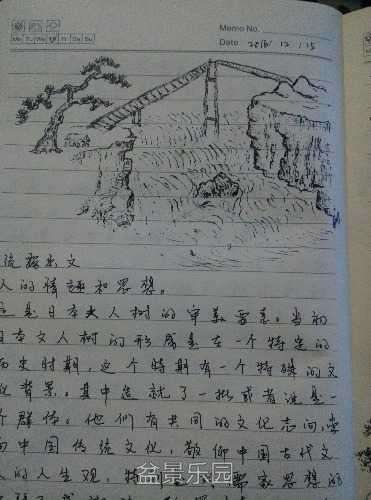 Memo No.
Date 2016 / 12 / 15
Mo Tu We Th Fr Sa Su
统 文
人的情趣和思想。
是日本文人树的审美要素。当初
日本文人树的形成是在一个特定的
历史时期,这个时期有一个特殊的文
化背景。其中造就了一批或者说是一
个群体。他们有共同的文化志向,
中国传统文化,敬仰中国古代文
人的人生观,特 家思想的
盆景乐园